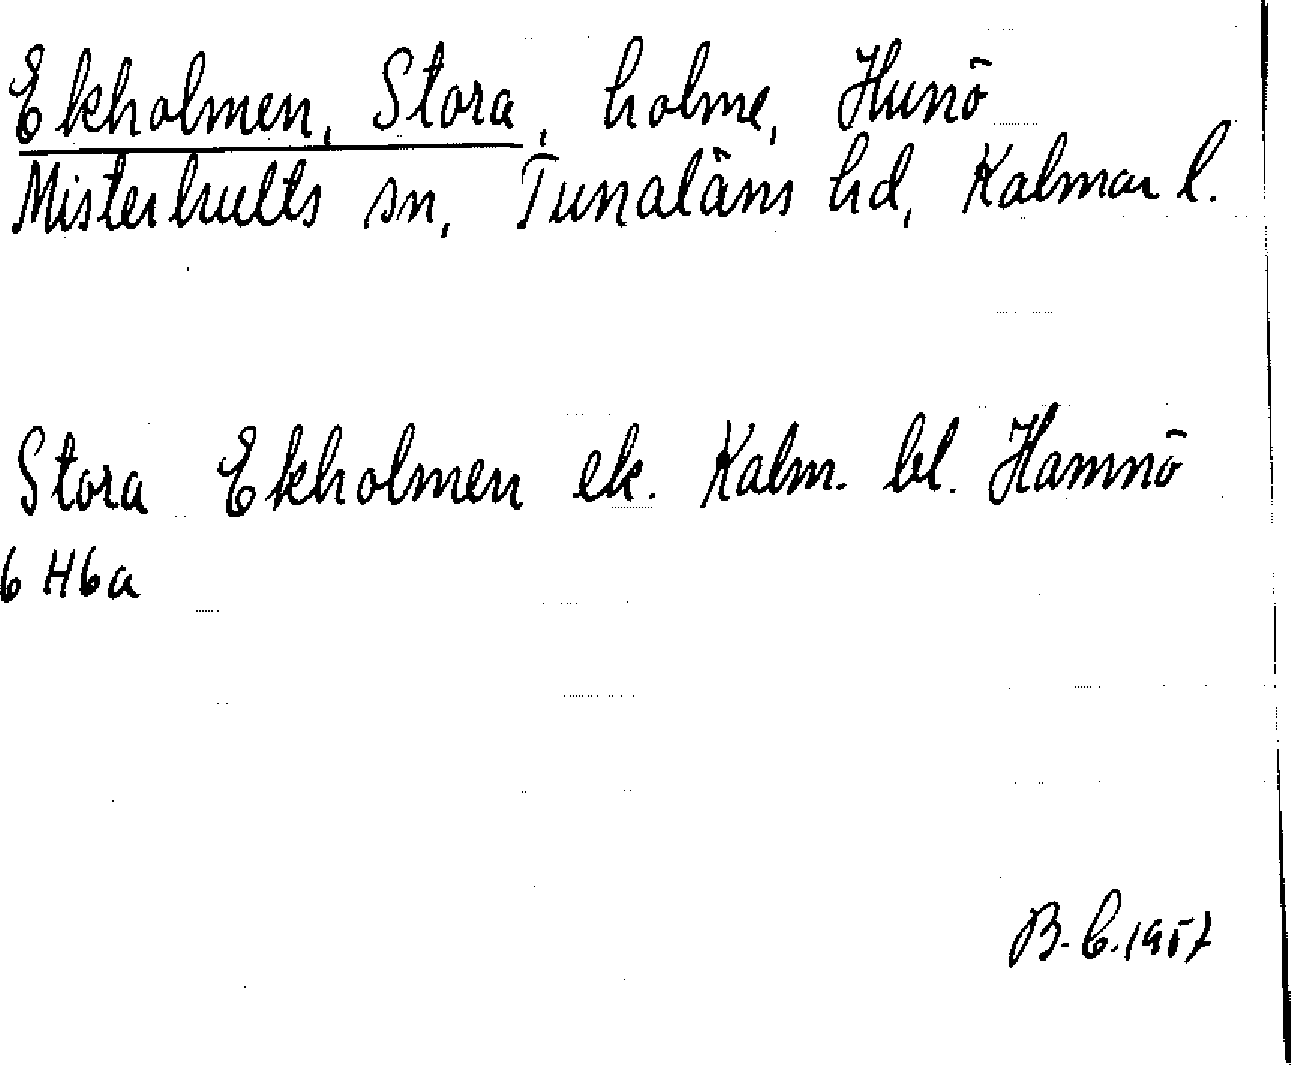 Ekholmen, Stora, holme, Hunö
Misterhults sn, Tunaläns hd, Kalmar l.
Stora Ekholmen ek. Kalm. bl. Hamnö
6 H6a
B. C. 1957